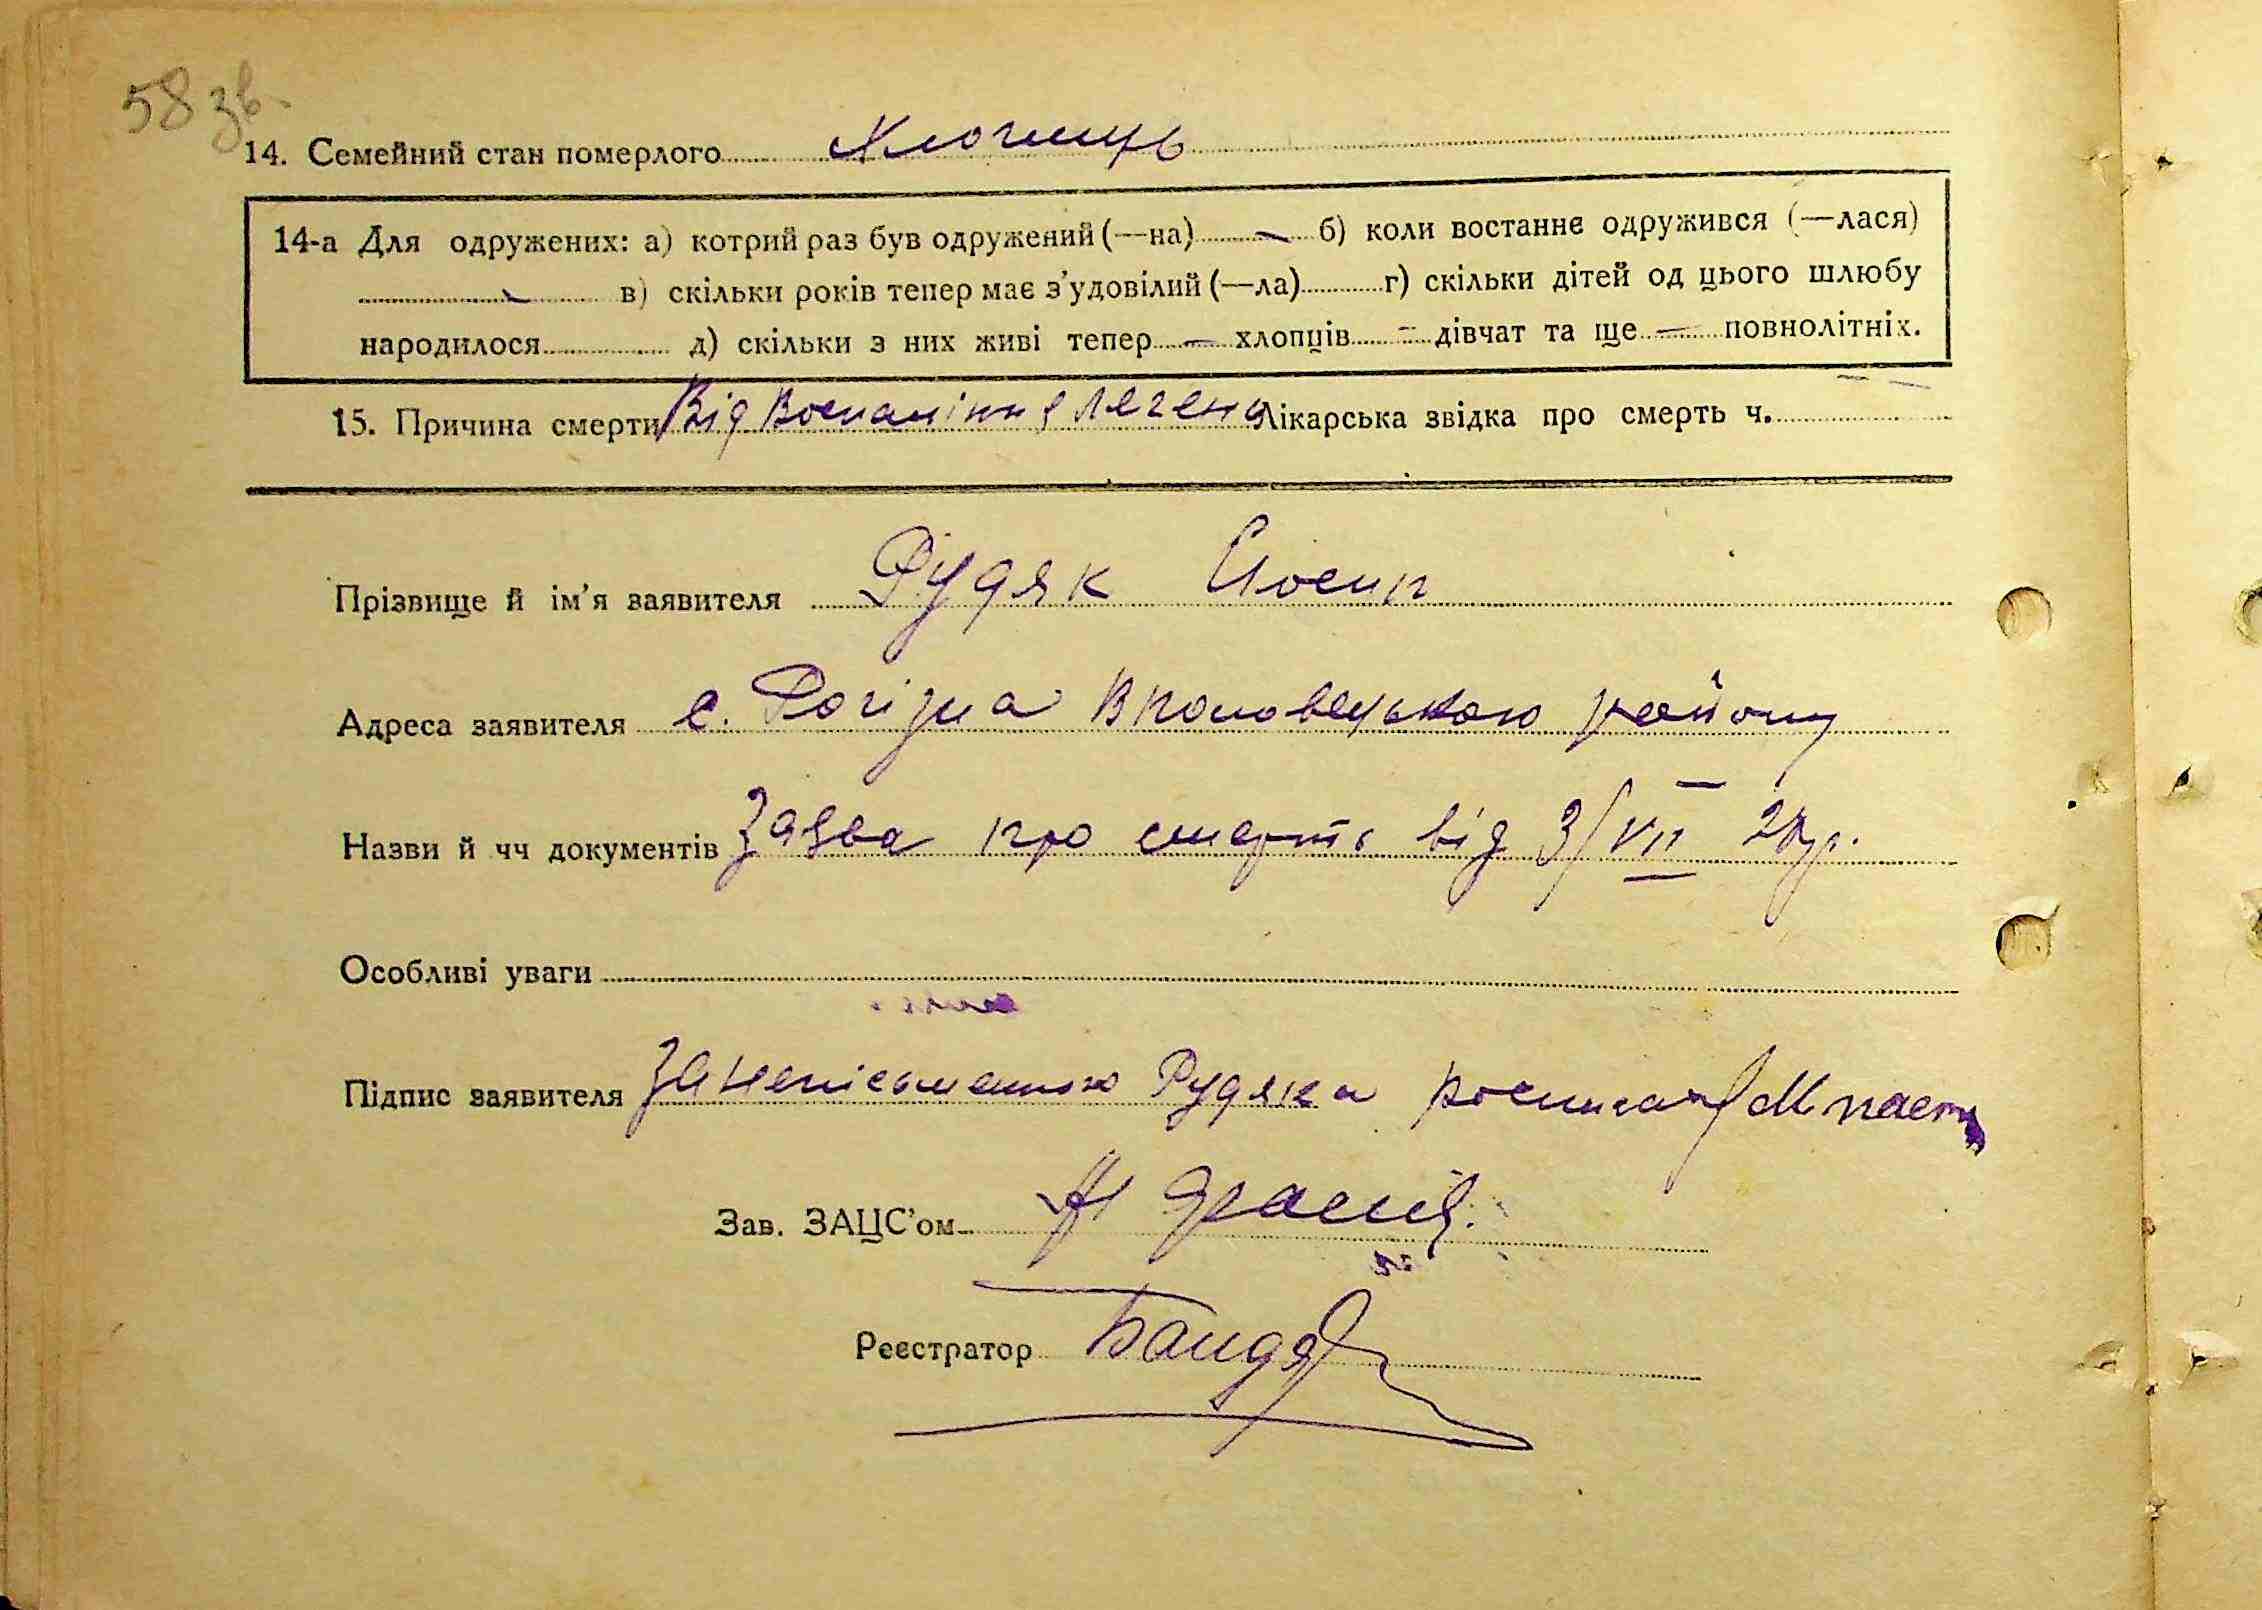 58 зв.
14. Семейний стан померлого Хлопець
14-а Для одружених: а) котрий раз був одружений (—на) — б) коли востаннє одружився (—лася)
в) скільки років тепер має з'удовілий (—ла) г) скільки дітей од цього шлюбу
народилося д) скільки з них живі тепер — хлопців — дівчат та ще — повнолітніх.
15. Причина смерти Від Воспаління легень Лікарська звідка про смерть ч.
Прізвище й ім'я заявителя Рудяк Йосип
Адреса заявителя с. Рогізна району
Назви й чч документів Заява про смерть від 3/VII
Особливі уваги
Підпис заявителя За неписьменного Рудяка
Зав. ЗАЦС'ом
Реєстратор